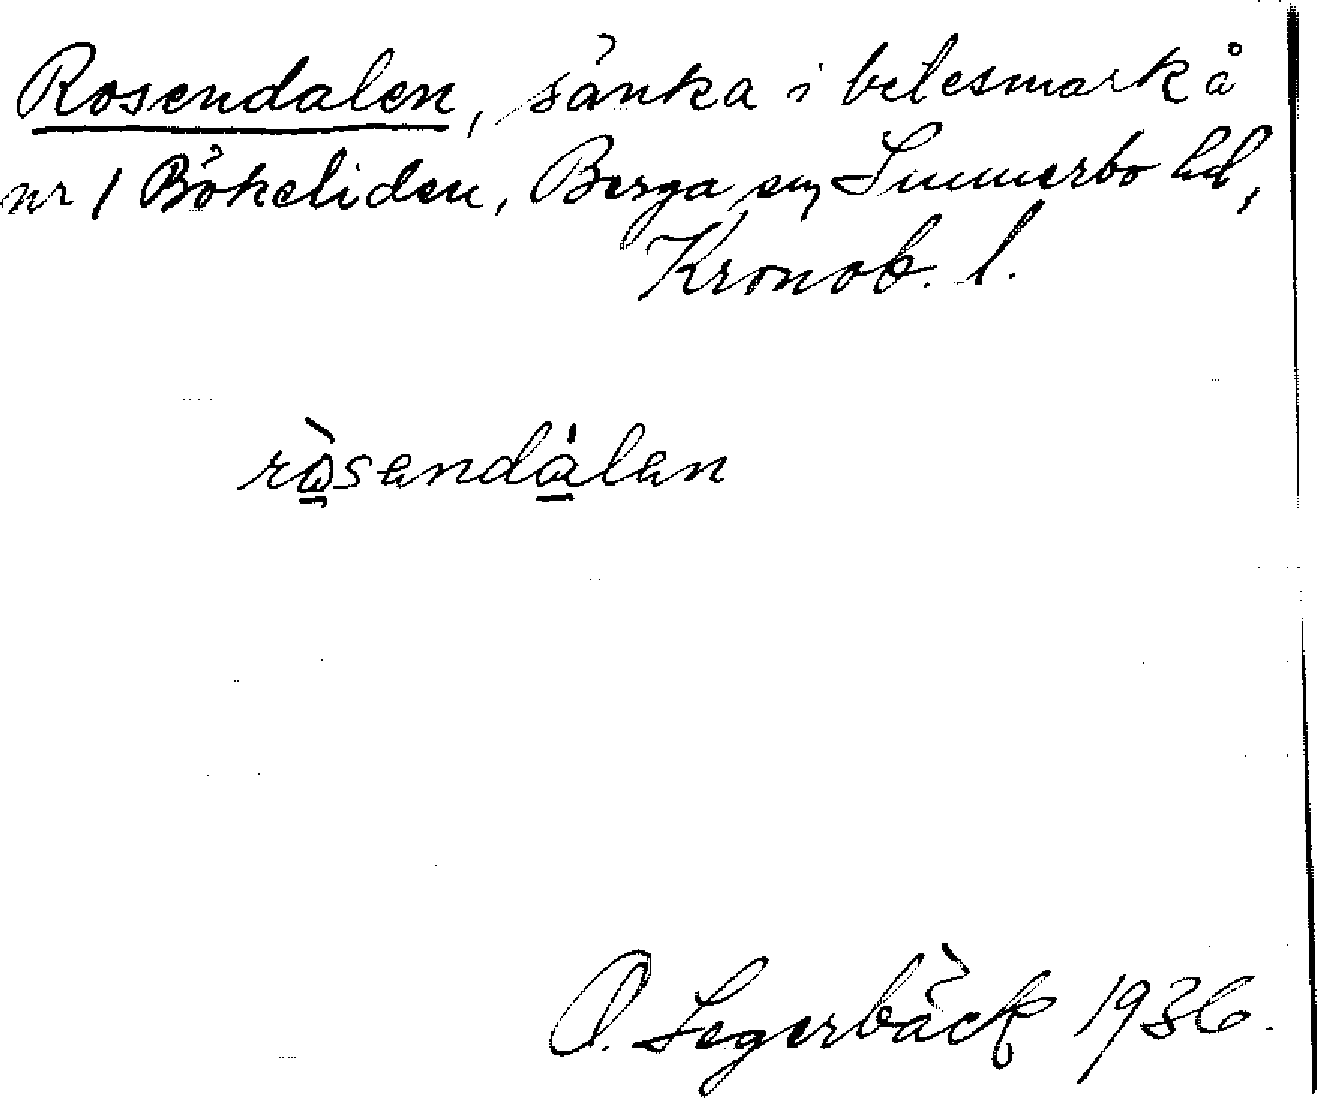 Rosendalen, sänka i betesmark å
nr 1 Bökeliden, Berga sn, Sunnerbo hd,
Kronob. l.
ròsandálan
O. Segerbäck 1936.